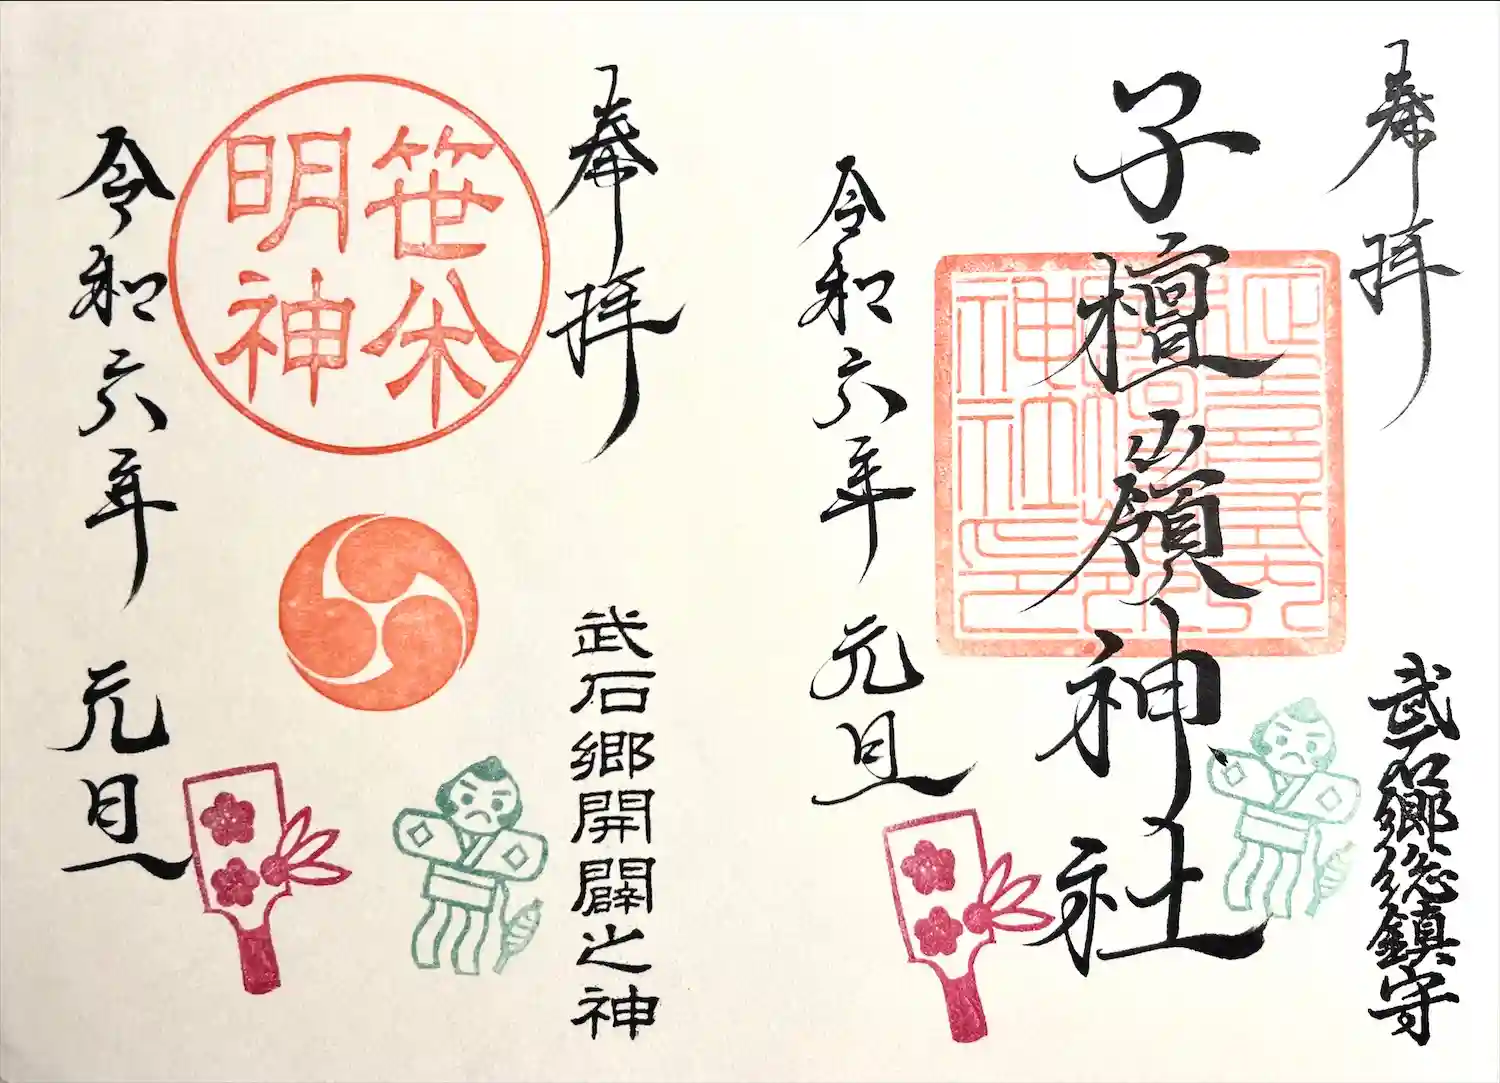 奉拝
武石郷総鎮守
子檀嶺神社
延喜式内
令和六年 元旦
奉拝
武石郷開闢之神
笹
明神
令和六年 元旦